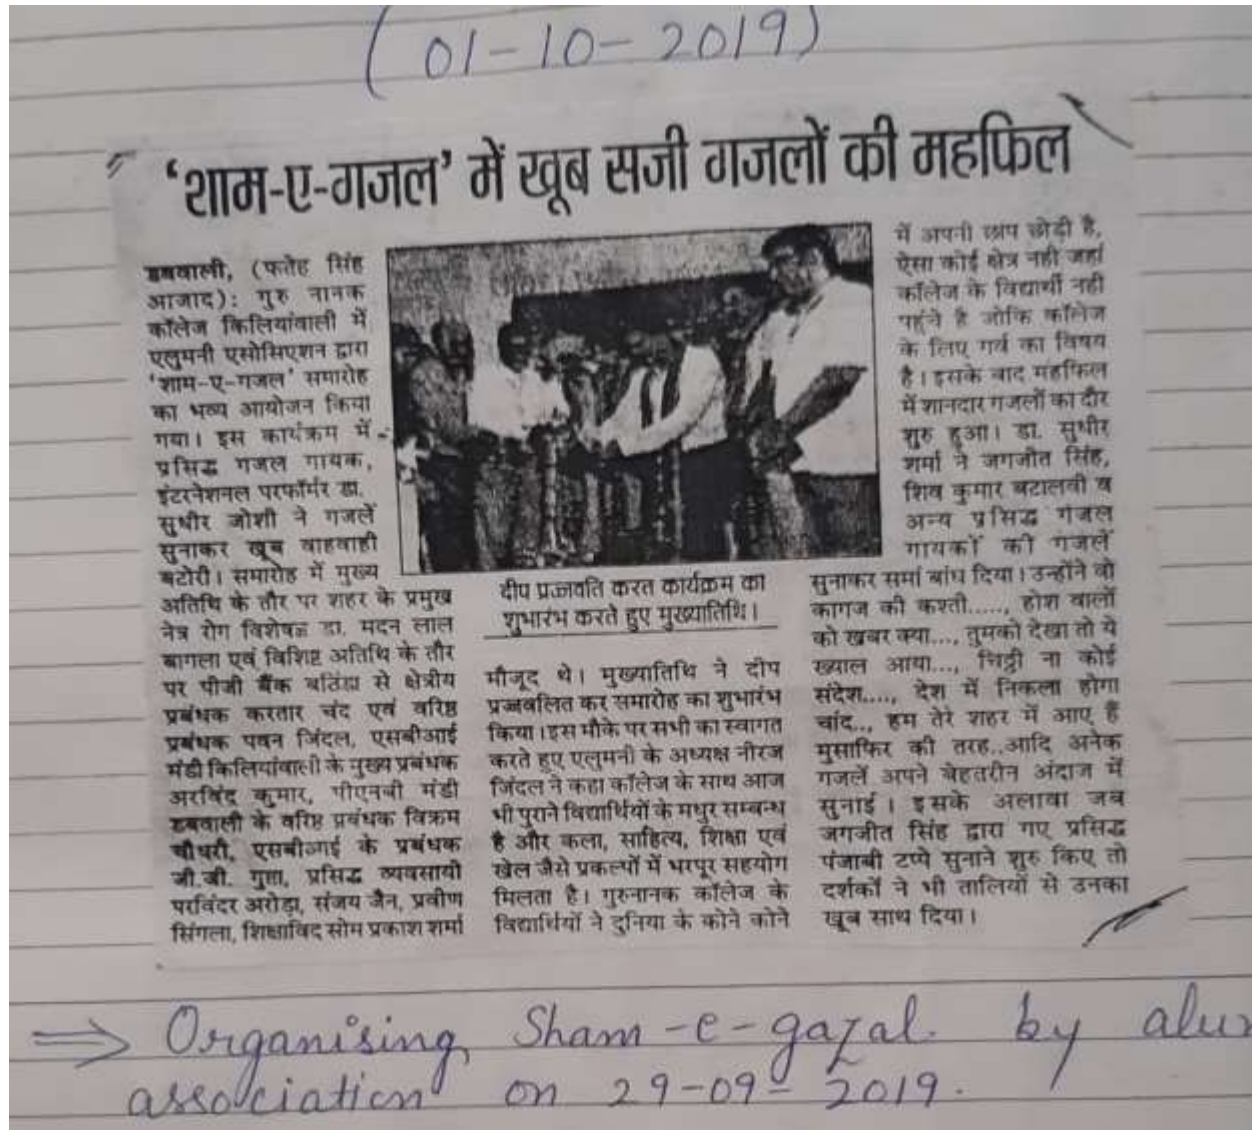 (01-10-2019)
‘शाम-ए-गजल’ में खूब सजी गजलों की महफिल
डबवाली, (फतेह सिंह
आजाद): गुरु नानक
कॉलेज किलियांवाली में
एलुमनी एसोसिएशन द्वारा
‘शाम-ए-गजल’ समारोह
का भव्य आयोजन किया
गया। इस कार्यक्रम में
प्रसिद्ध गजल गायक,
इंटरनेशनल परफॉर्मर डा.
सुधीर जोशी ने गजलें
सुनाकर खूब वाहवाही
बटोरी। समारोह में मुख्य
अतिथि के तौर पर शहर के प्रमुख
नेत्र रोग विशेषज्ञ डा. मदन लाल
बागला एवं विशिष्ट अतिथि के तौर
पर पीजी बैंक बठिंडा से क्षेत्रीय
प्रबंधक करतार चंद एवं वरिष्ठ
प्रबंधक पवन जिंदल, एसबीआई
मंडी किलियांवाली के मुख्य प्रबंधक
अरविंद कुमार, पीएनबी मंडी
डबवाली के वरिष्ठ प्रबंधक विक्रम
चौधरी, एसबीआई के प्रबंधक
जी.जी. गुप्ता, प्रसिद्ध व्यवसायी
परविंदर अरोड़ा, संजय जैन, प्रवीण
सिंगला, शिक्षाविद सोम प्रकाश शर्मा
दीप प्रज्जवति करत कार्यक्रम का
शुभारंभ करते हुए मुख्यातिथि।
मौजूद थे। मुख्यातिथि ने दीप
प्रज्जवलित कर समारोह का शुभारंभ
किया।इस मौके पर सभी का स्वागत
करते हुए एलुमनी के अध्यक्ष नीरज
जिंदल ने कहा कॉलेज के साथ आज
भी पुराने विद्यार्थियों के मधुर सम्बन्ध
है और कला, साहित्य, शिक्षा एवं
खेल जैसे प्रकल्पों में भरपूर सहयोग
मिलता है। गुरुनानक कॉलेज के
विद्यार्थियों ने दुनिया के कोने कोने
में अपनी छाप छोड़ी है,
ऐसा कोई क्षेत्र नही जहां
कॉलेज के विद्यार्थी नही
पहुंचे है जोकि कॉलेज
के लिए गर्व का विषय
है। इसके बाद महफिल
में शानदार गजलों का दौर
शुरु हुआ। डा. सुधीर
शर्मा ने जगजीत सिंह,
शिव कुमार बटालवी व
अन्य प्रसिद्ध गजल
गायकों की गजलें
सुनाकर समां बांध दिया। उन्होंने वो
कागज की कश्ती....., होश वालों
को खबर क्या..., तुमको देखा तो ये
ख्याल आया..., चिट्ठी ना कोई
संदेश...., देश में निकला होगा
चांद.., हम तेरे शहर में आए हैं
मुसाफिर की तरह..आदि अनेक
गजलें अपने बेहतरीन अंदाज में
सुनाई। इसके अलावा जब
जगजीत सिंह द्वारा गए प्रसिद्ध
पंजाबी टप्पे सुनाने शुरु किए तो
दर्शकों ने भी तालियों से उनका
खूब साथ दिया।
⇒ Organising Sham-e-gazal by
association on 29-09-2019.